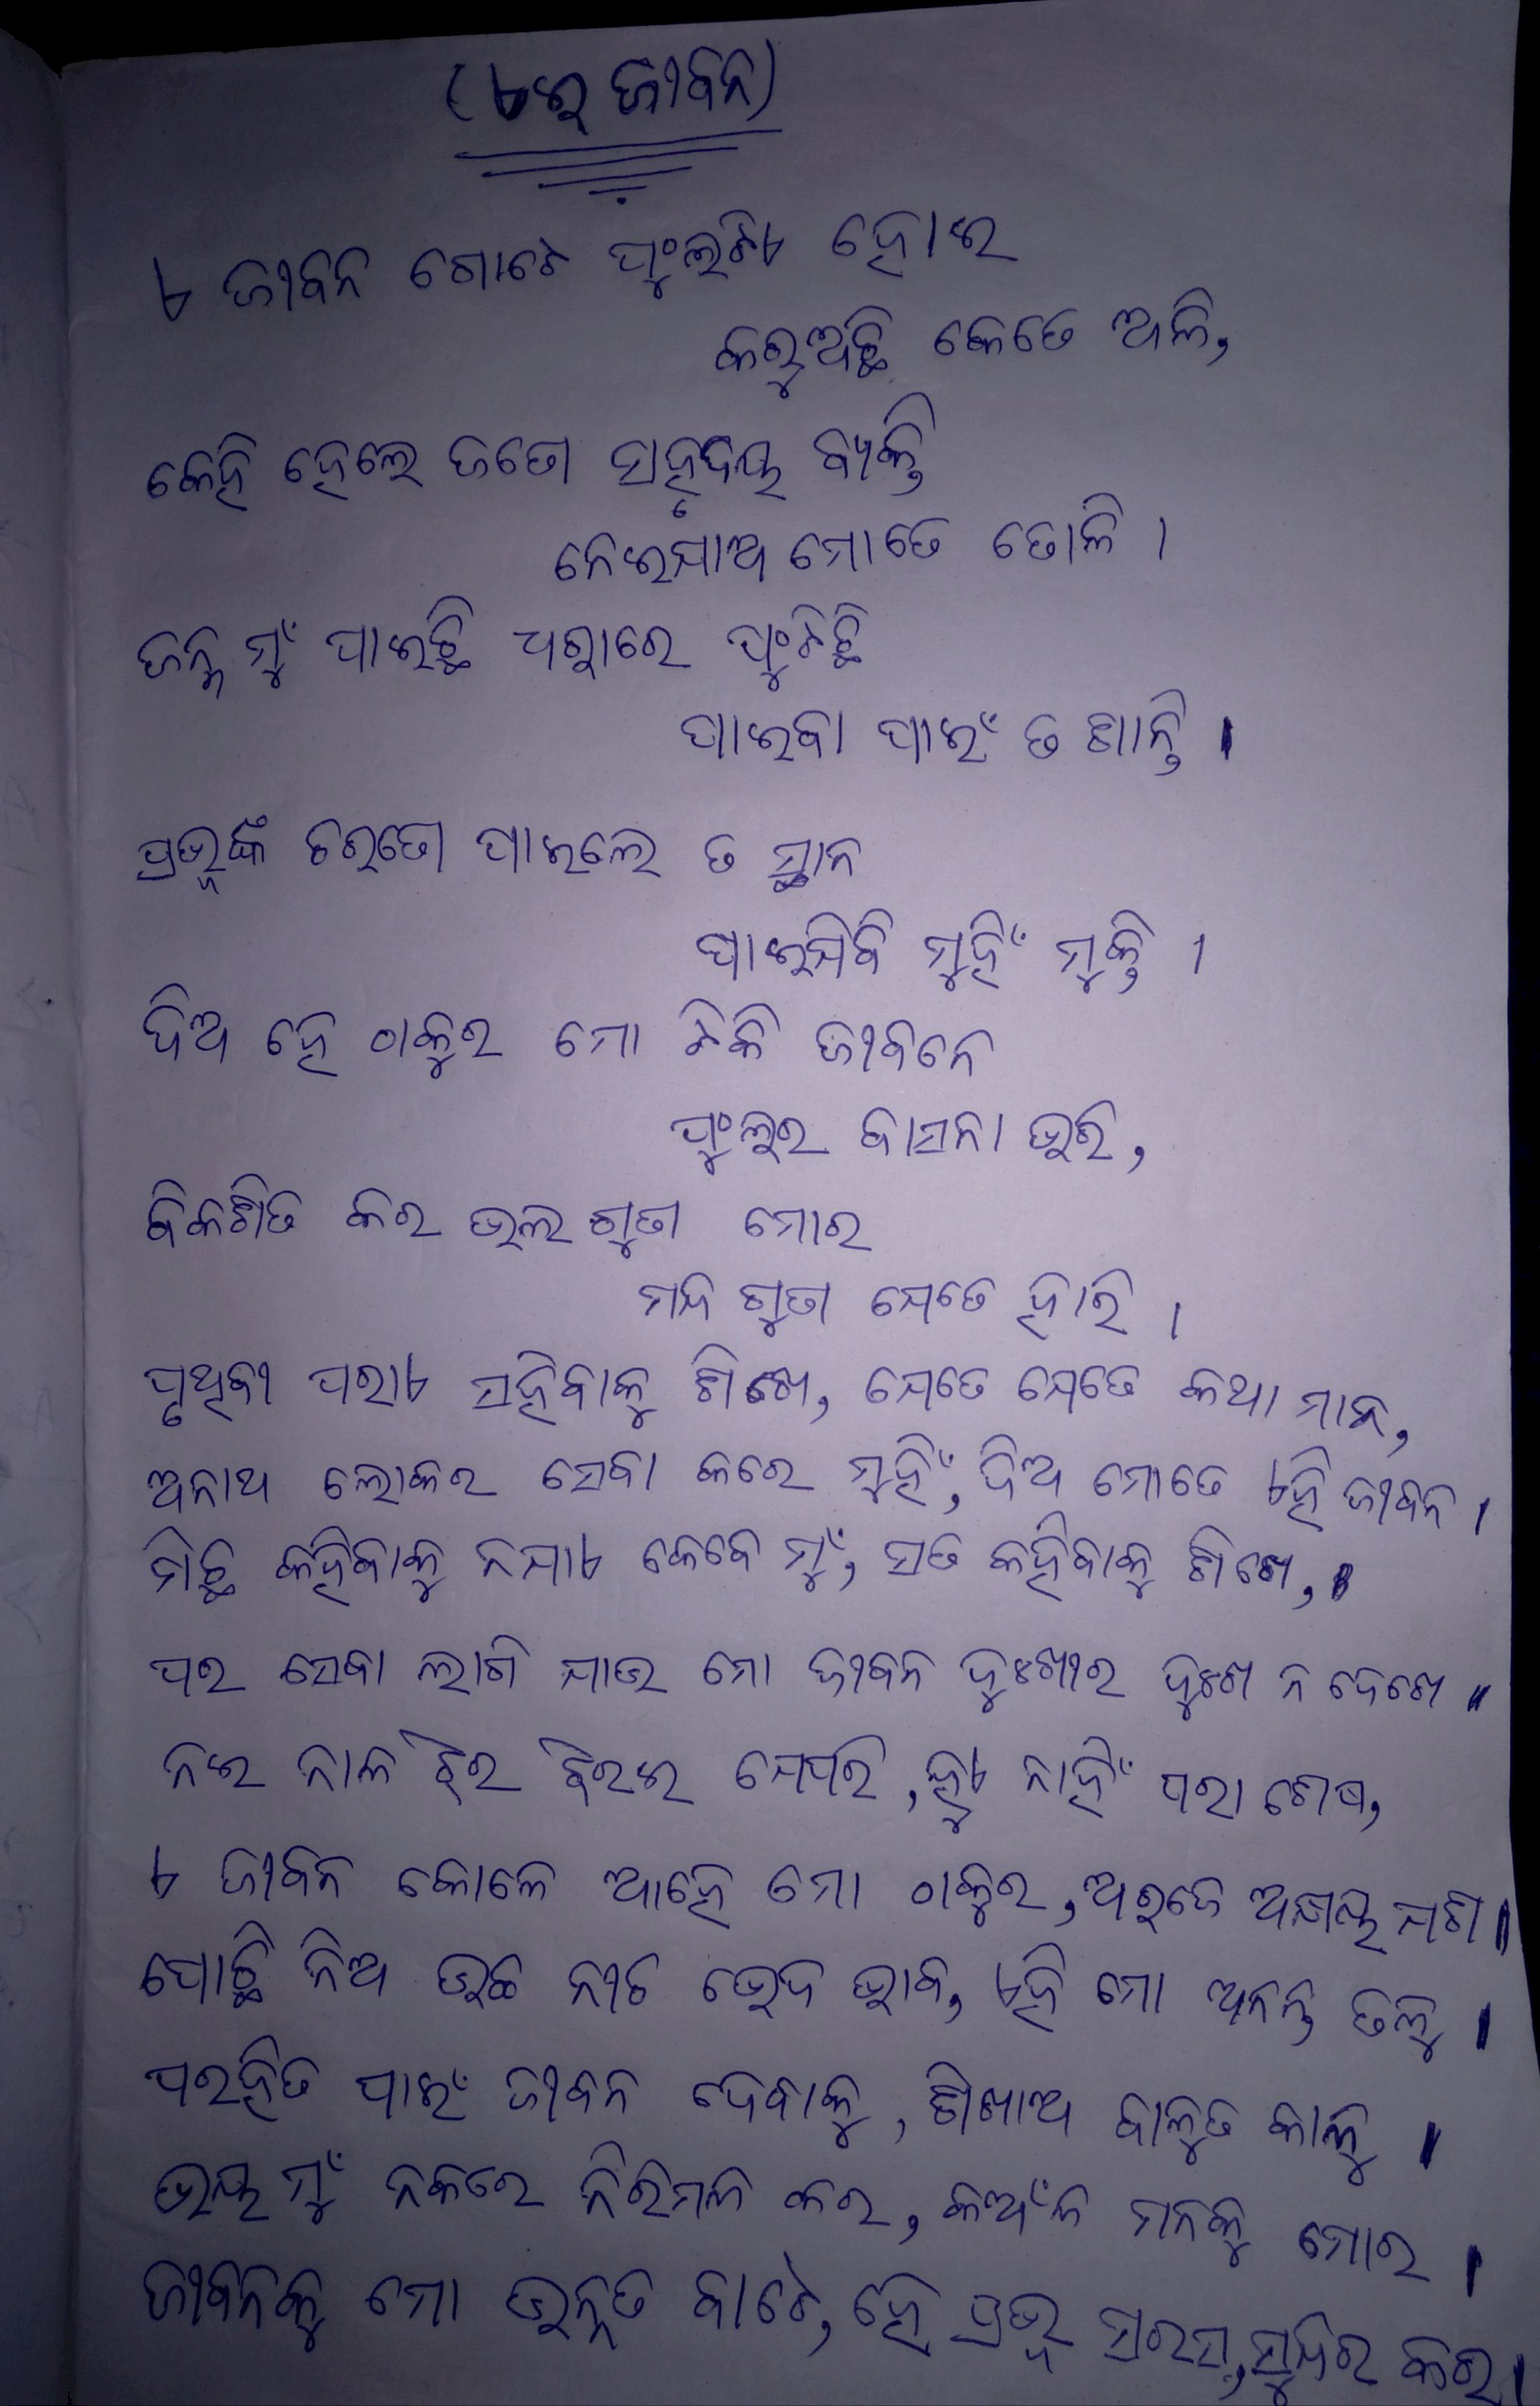 (ଏଇ ଜୀବନ)
ଏ ଜୀବନ ଗୋଟେ ଫୁଲଟଏ ହୋଇ
କରୁଅଛି କେତେ ଅଳି,
କେହି ହେଲେ ଜଣେ ସହୃଦୟ ବ୍ୟକ୍ତି
ନେଇଯାଅ ମୋତେ ତୋଳି ।
ଜନ୍ମ ମୁଁ ପାଇଛି ଧରାରେ ଫୁଟିଛି
ପାଇବା ପାଇଁ ତ ଶାନ୍ତି ।
ପ୍ରଭୁଙ୍କ ଚରଣେ ପାଇଲେ ତ ସ୍ଥାନ
ପାଇଯିବି ମୁହିଁ ମୁକ୍ତି ।
ଦିଅ ହେ ଠାକୁର ମୋ ଟିକି ଜୀବନେ
ଫୁଲର ବାସନା ଭରି,
ବିକଶିତ କର ଭଲ ଗୁଣ ମୋର
ମନ୍ଦ ଗୁଣ ଯେତେ ହାରି ।
ପୃଥିବୀ ପରାଏ ସହିବାକୁ ଶିଖେ, ଯେତେ ଯେତେ କଥା ମାନ,
ଅନାଥ ଲୋକର ସେବା କରେ ମୁହିଁ, ଦିଅ ମୋତେ ଏହି ଜୀବନ ।
ମିଛ କହିବାକୁ ନଯାଏ କେବେ ମୁଁ, ସତ କହିବାକୁ ଶିଖେ, ।
ପର ସେବା ଲାଗି ଯାଉ ମୋ ଜୀବନ ଦୁଃଖୀର ଦୁଃଖ ନ ଦେଖେ ॥
ନଈ ନାଳ ଝର ଝରଇ ଯେପରି, ହୁଏ ନାହିଁ ପରା ଶେଷ,
ଏ ଜୀବନ କୋଳେ ଆହେ ମୋ ଠାକୁର, ଅରଜେ ଅକ୍ଷୟ ଯଶ ।
ପୋଛି ନିଅ ଉଚ୍ଚ ନୀଚ ଭେଦ ଭାବ, ଏହି ମୋ ଅନନ୍ତ ତଳୁ ।
ପରହିତ ପାଇଁ ଜୀବନ ଦେବାକୁ, ଶିଖାଅ ବାଳୁତ କାଳୁ ।
ଭୟ ମୁଁ ନକରେ ନିରିମଳ କର, କଅଁଳ ମନକୁ ମୋର ।
ଜୀବନକୁ ମୋ ଉନ୍ନତ ବାଟେ, ହେ ପ୍ରଭୁ ସରସ, ସୁନ୍ଦର କର ।